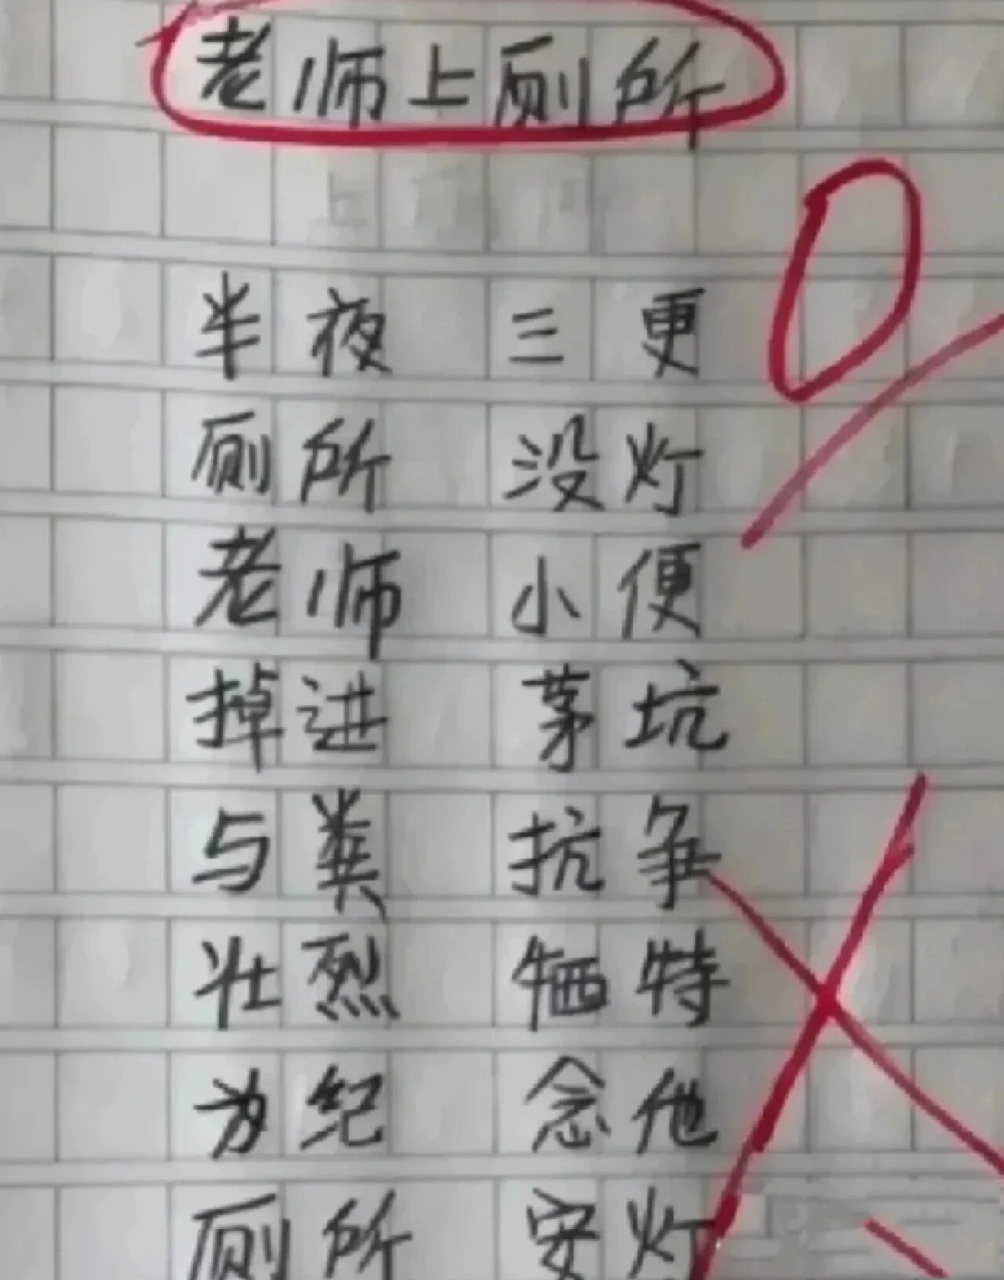 老师上厕所
半夜三更
厕所没灯
老师小便
掉进茅坑
与粪抗争
壮烈牺特
为纪念他
厕所安灯